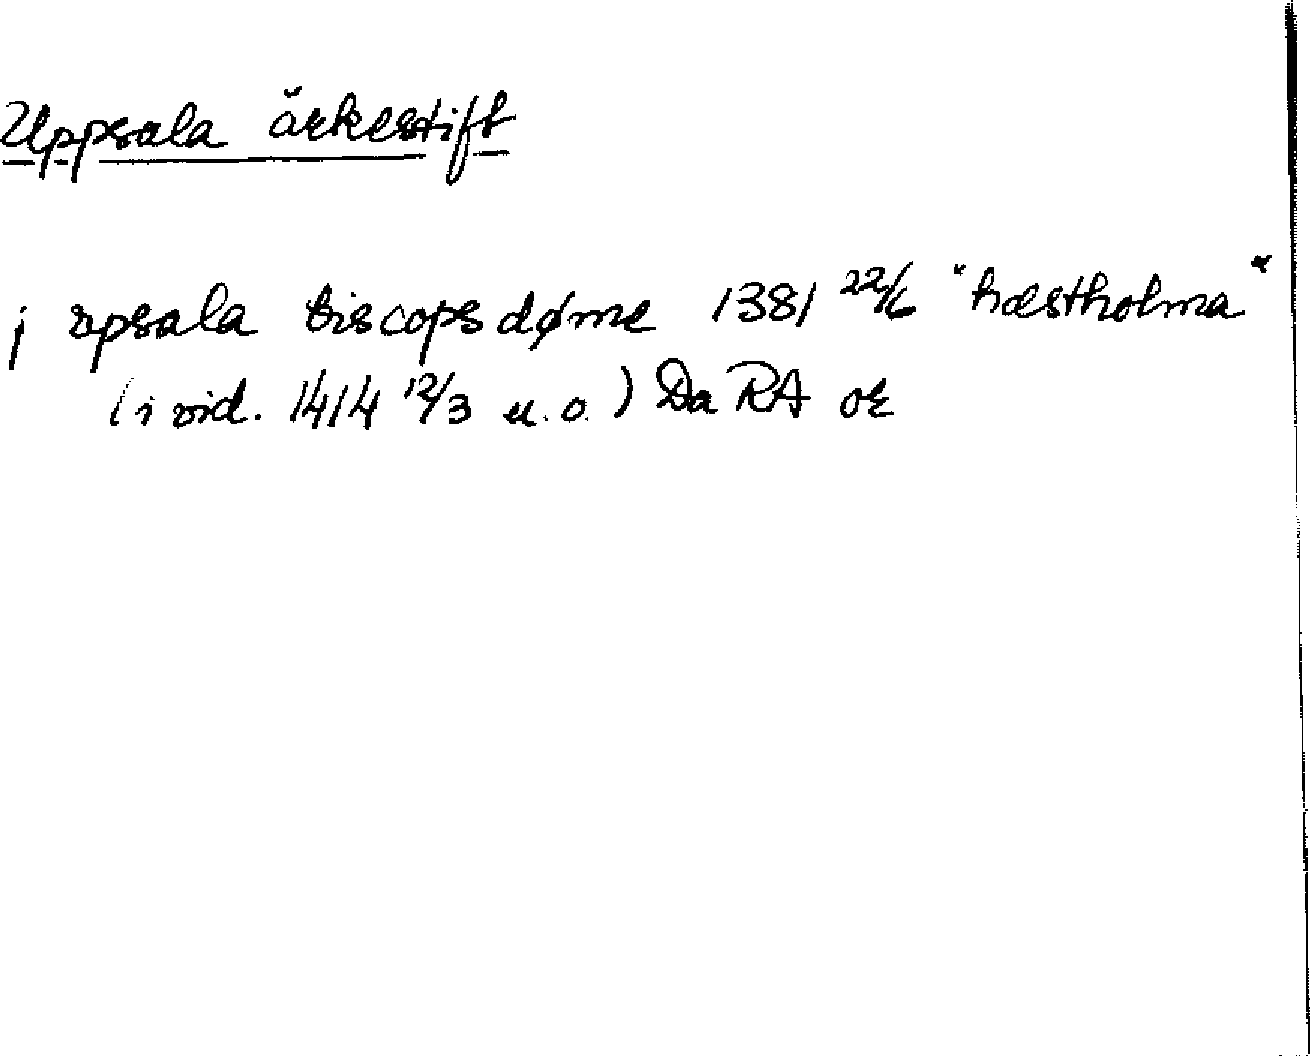 Uppsala ärkestift
j vpsala biscops døme 1381 22/6 "hæstholma"
(i vid. 1414 12/3 u.o.) Da RA or